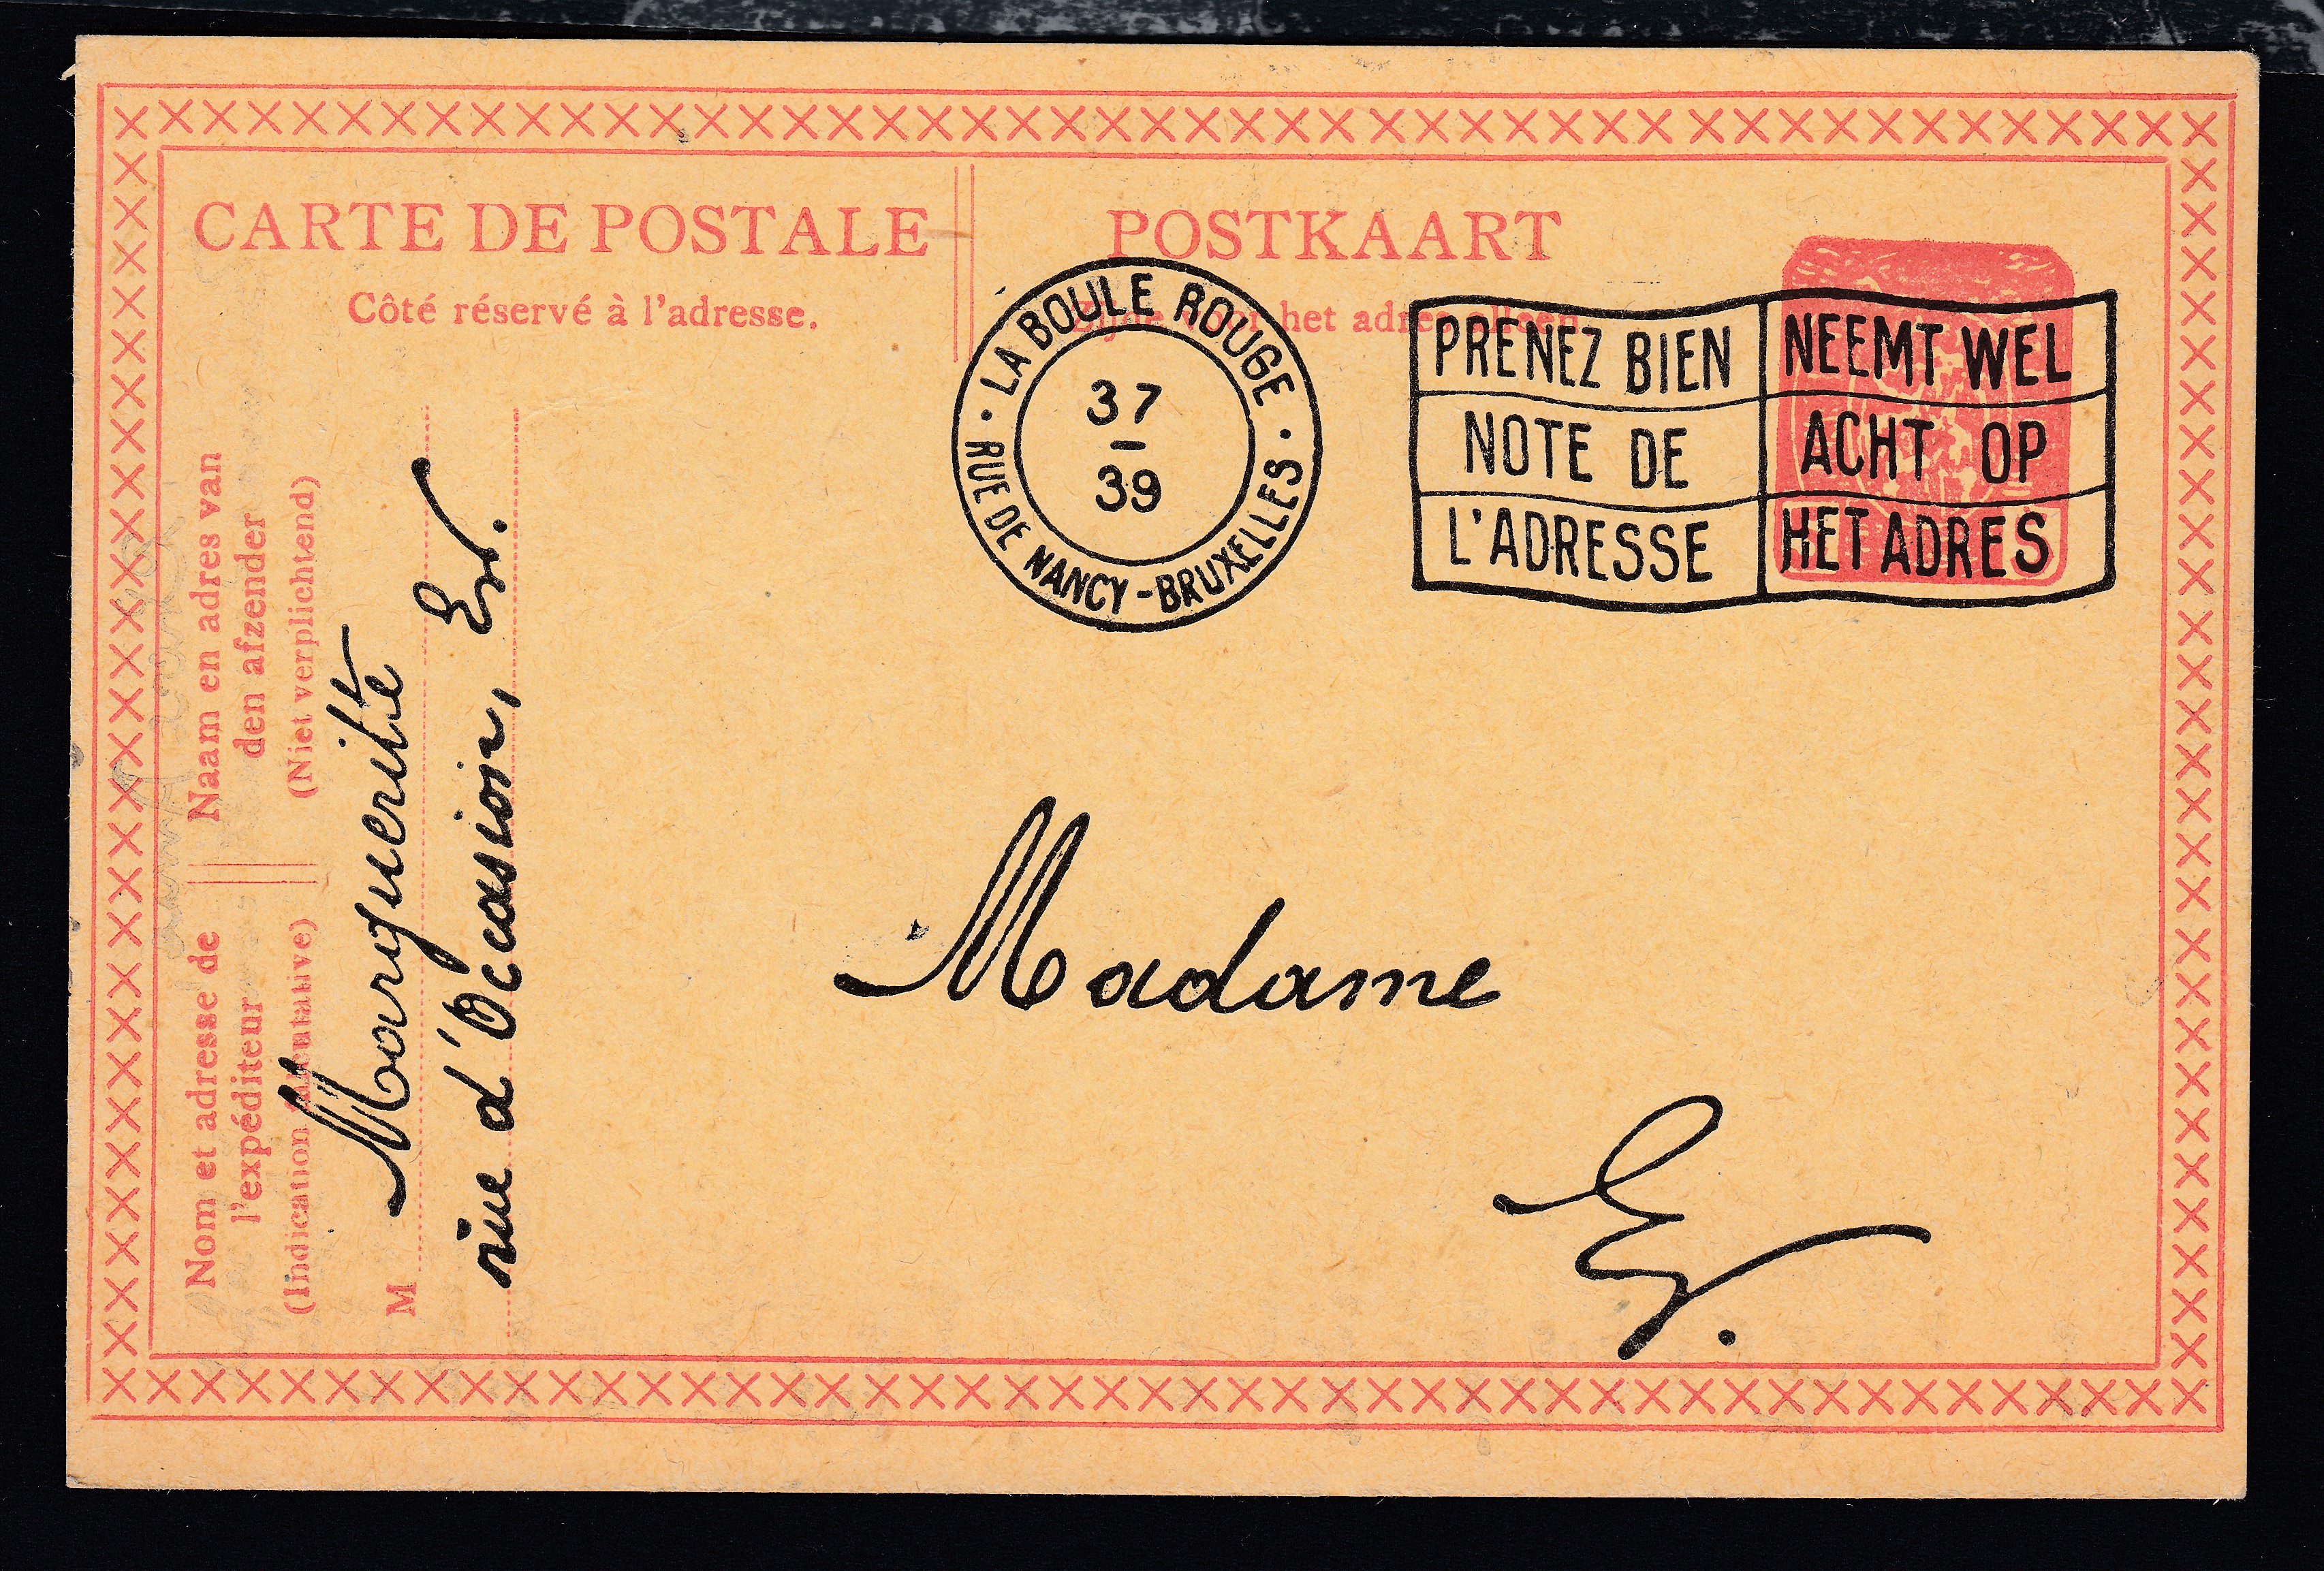 CARTE DE POSTALE
Côté réservé à l'adresse.
POSTKAART
Zijde voor het adres alleen
· LA BOULE ROUGE ·
37
—
39
RUE DE NANCY - BRUXELLES
PRENEZ BIEN
NOTE DE
L'ADRESSE
NEEMT WEL
ACHT OP
HET ADRES
Naam en adres van
den afzender
(Niet verplichtend)
Nom et adresse de
l'expéditeur
(Indication facultative)
M
Marguerite
rue d'Occasion,
Madame